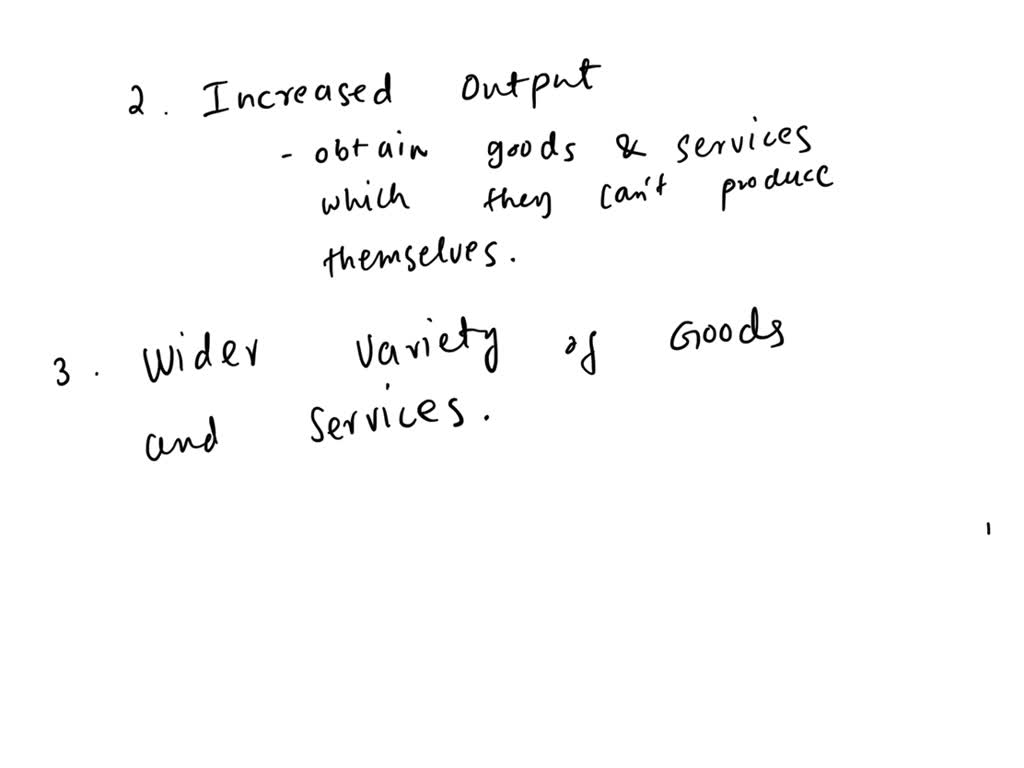 2. Increased Output
- obtain goods & services
which they can't produce
themselves.
3. Wider Variety of Goods
and Services.